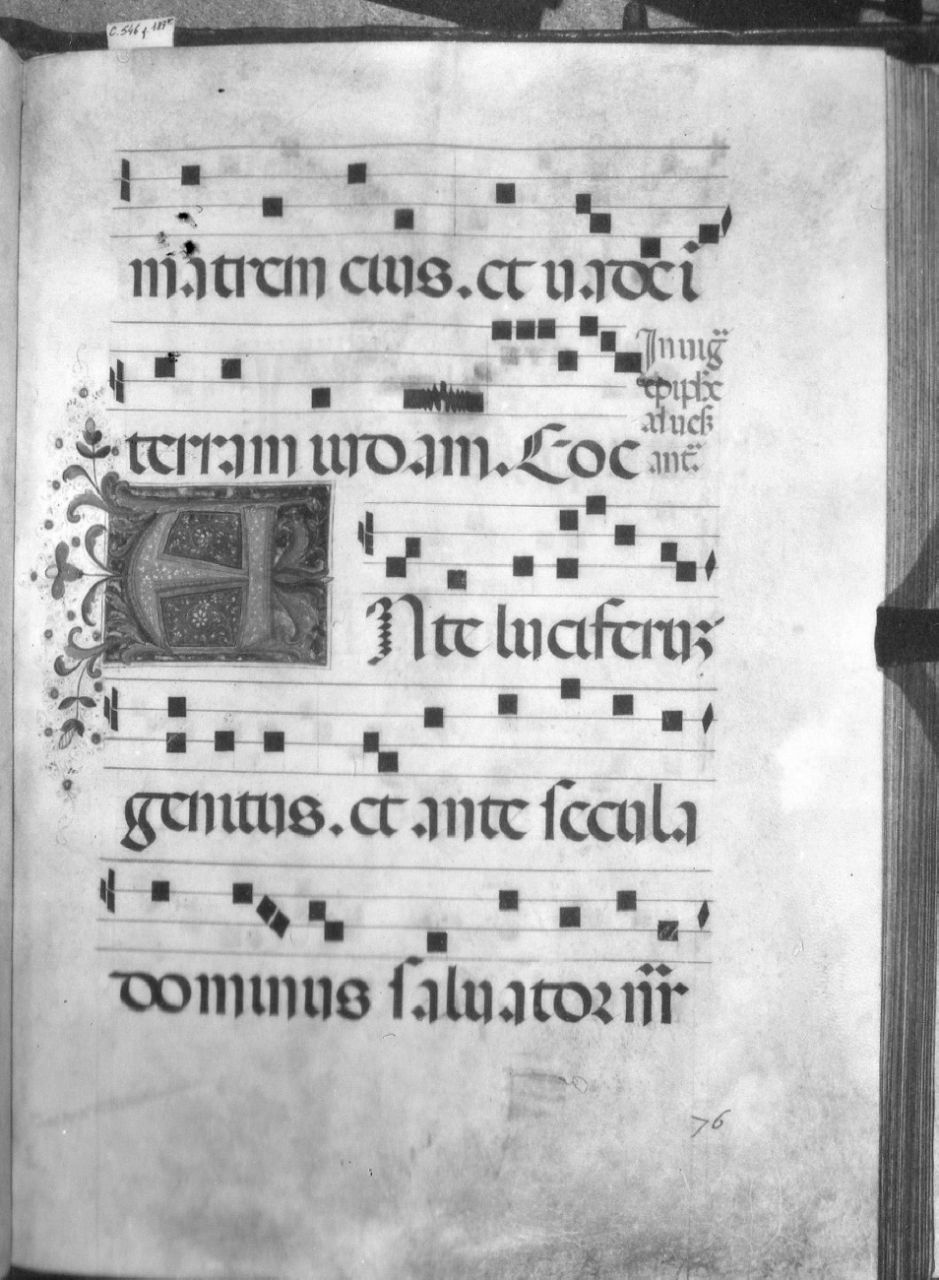 C. 546 f. 183r
matrem eius. et uade i
terram iudam. Eoe
In uig̃
epiphe
ad ues
ant̃
ANte luciferuz
genitus. et ante secula
dominus saluator nr̃
76